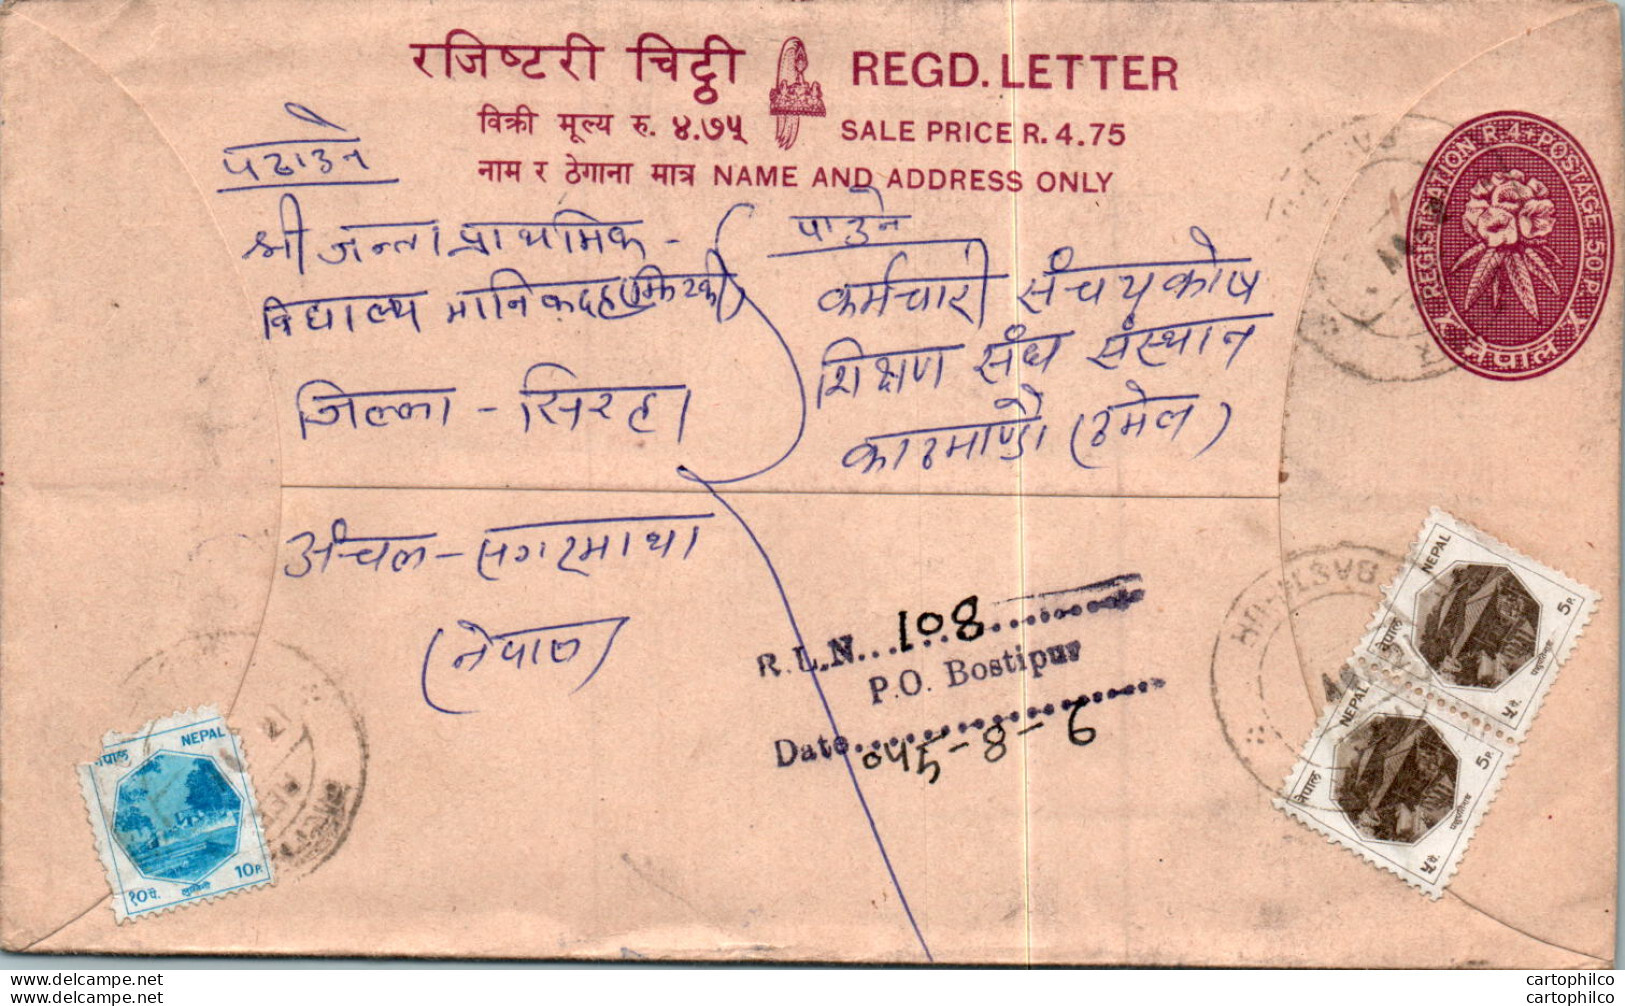 रजिष्टरी चिट्ठी REGD. LETTER
विक्री मूल्य रु. ४.७५ SALE PRICE R. 4.75
नाम र ठेगाना मात्र NAME AND ADDRESS ONLY
REGISTRATION R.4. POSTAGE 50 P.
नेपाल
पठाउने
श्री जन्ता प्राथमिक -
विद्यालय मानिकदह
जिल्ला - सिरहा
अंचल - सगरमाथा
(नेपाल)
पाउने
कर्मचारी संचयकोष
शिक्षण संघ संस्थान
काठमाण्डौ (ठमेल)
R.L.N. 108
P.O. Bostipur
Date 045-8-2
नेपाल NEPAL
१० पै. लुम्बिनी 10 P.
नेपाल NEPAL
५ पै. पशुपतिनाथ 5 P.
नेपाल NEPAL
५ पै. पशुपतिनाथ 5 P.
BASTIPUR
www.delcampe.net
www.delcampe.net
cartophilco
cartophilco